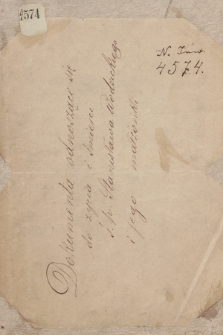 4574
N. Inw
4574.
Dokumenta odnoszące się
do życia i śmierci
ś. p. Stanisława Wodzickiego
i jego małżonki